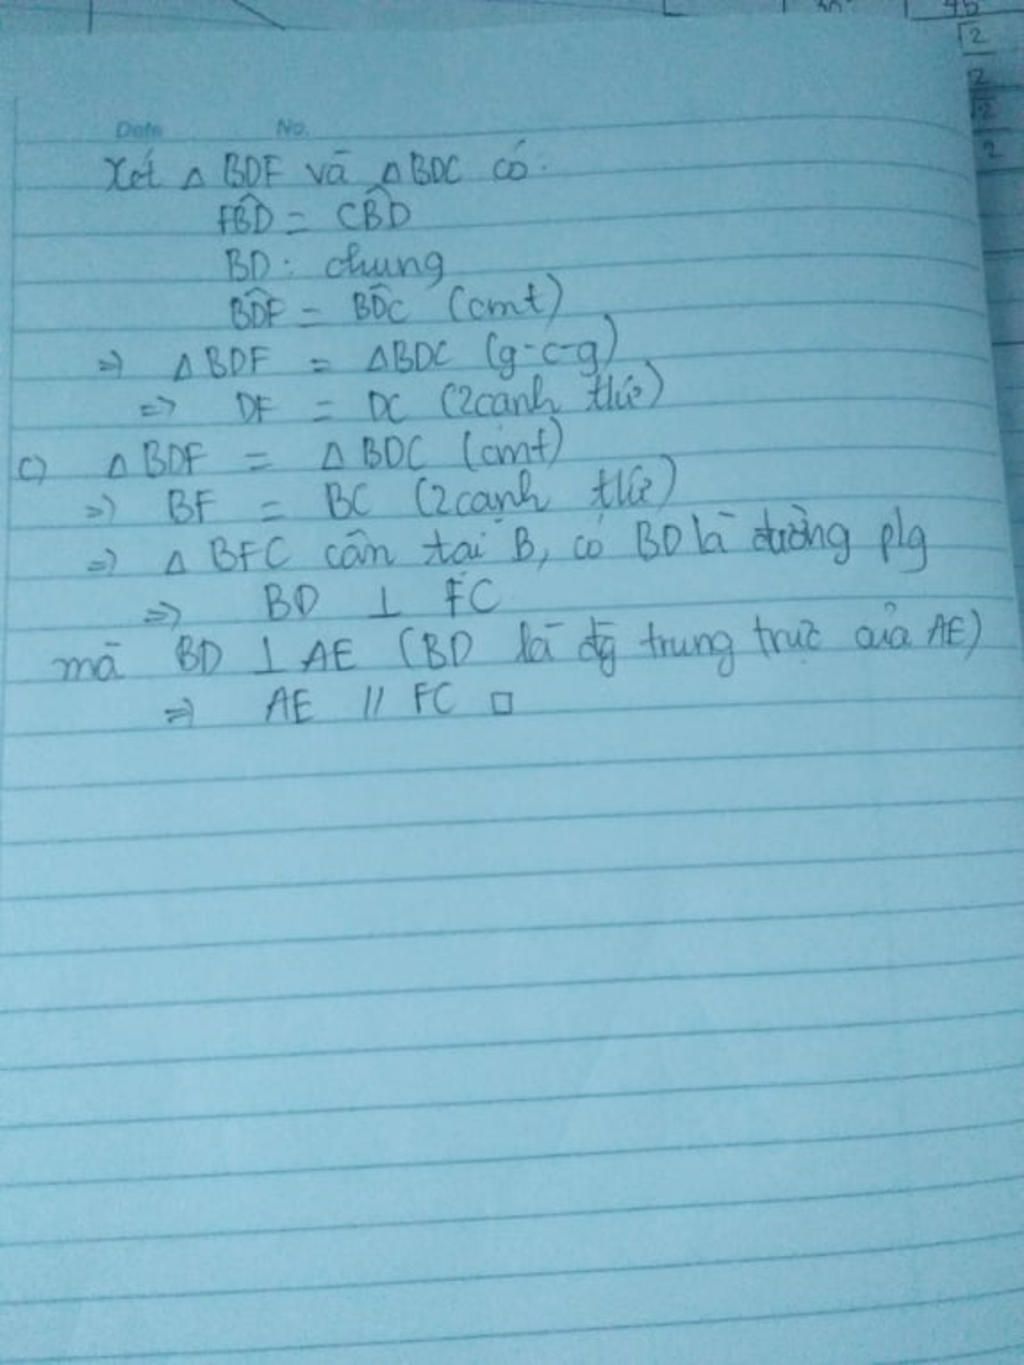 45
√2
2
√2
2
Date No.
Xét △ BDF và △BDC có:
FBD̂ = CBD̂
BD: chung
BDF̂ = BDĈ (cmt)
=> △BDF = △BDC (g-c-g)
=> DF = DC (2 cạnh tứ)
c) △BDF = △BDC (cmt)
=> BF = BC (2 cạnh tứ)
=> △ BFC cân tại B, có BD là đường plg
=> BD ⊥ FC
mà BD ⊥ AE (BD là đg trung trực của AE)
=> AE // FC □